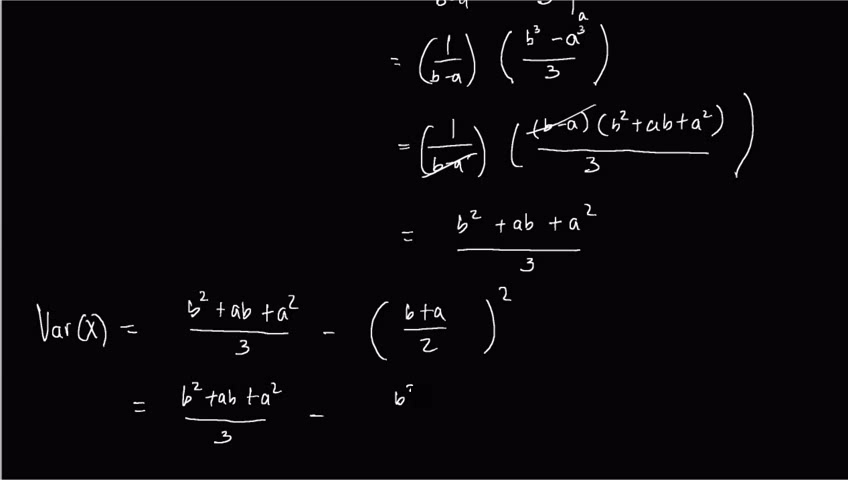 = (1/(b-a)) ((b³ - a³)/3)
= (1/(b-a)) (((b-a)(b² + ab + a²))/3)
= (b² + ab + a²)/3
Var(X) = (b² + ab + a²)/3 - ((b+a)/2)²
= (b² + ab + a²)/3 - b²